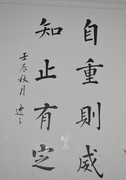 自重則威
知止有定
壬辰秋月